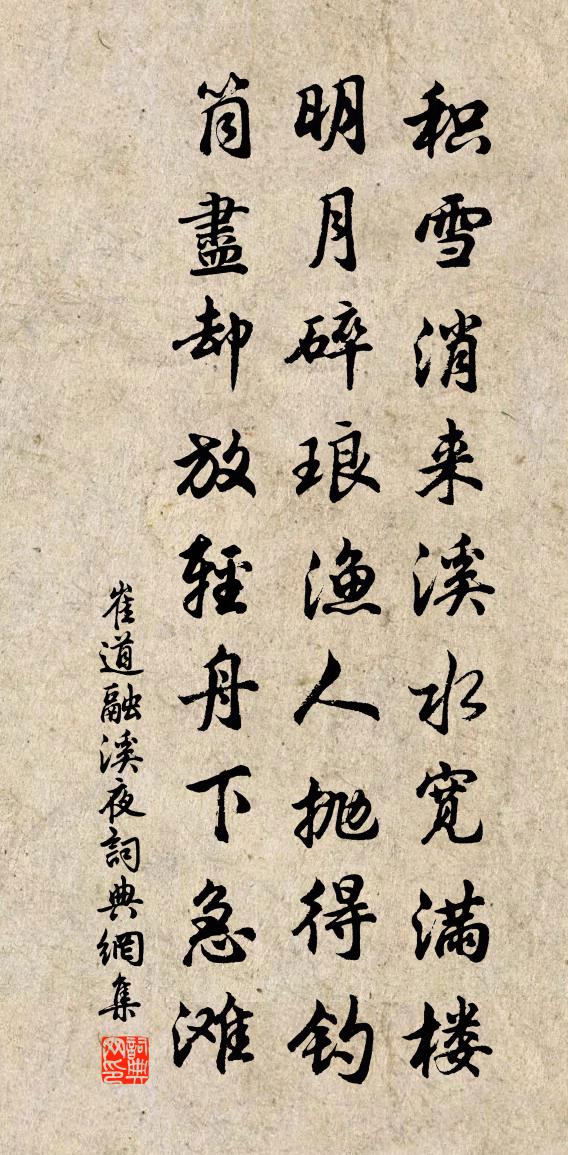 积雪消来溪水宽满楼
明月碎琅渔人抛得钓
筒盡却放輕舟下急滩
崔道融溪夜詞典網集
詞典网印